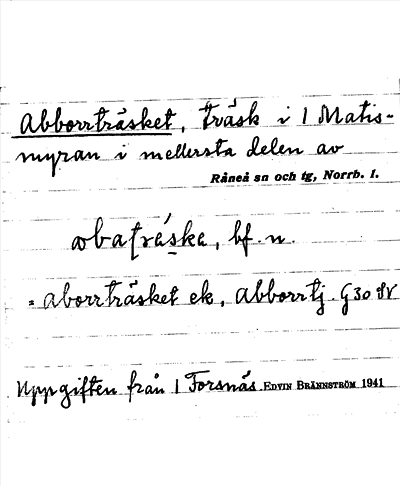 Abborrträsket, träsk i 1 Matis-
myran i mellersta delen av
Råneå sn och tg, Norrb. l.
abatrӕ́ske, bf. n.
= aborrträsket ek, Abborrtj. G30 SV
Uppgiften från 1 Forsnäs. EDVIN BRÄNNSTRÖM 1941